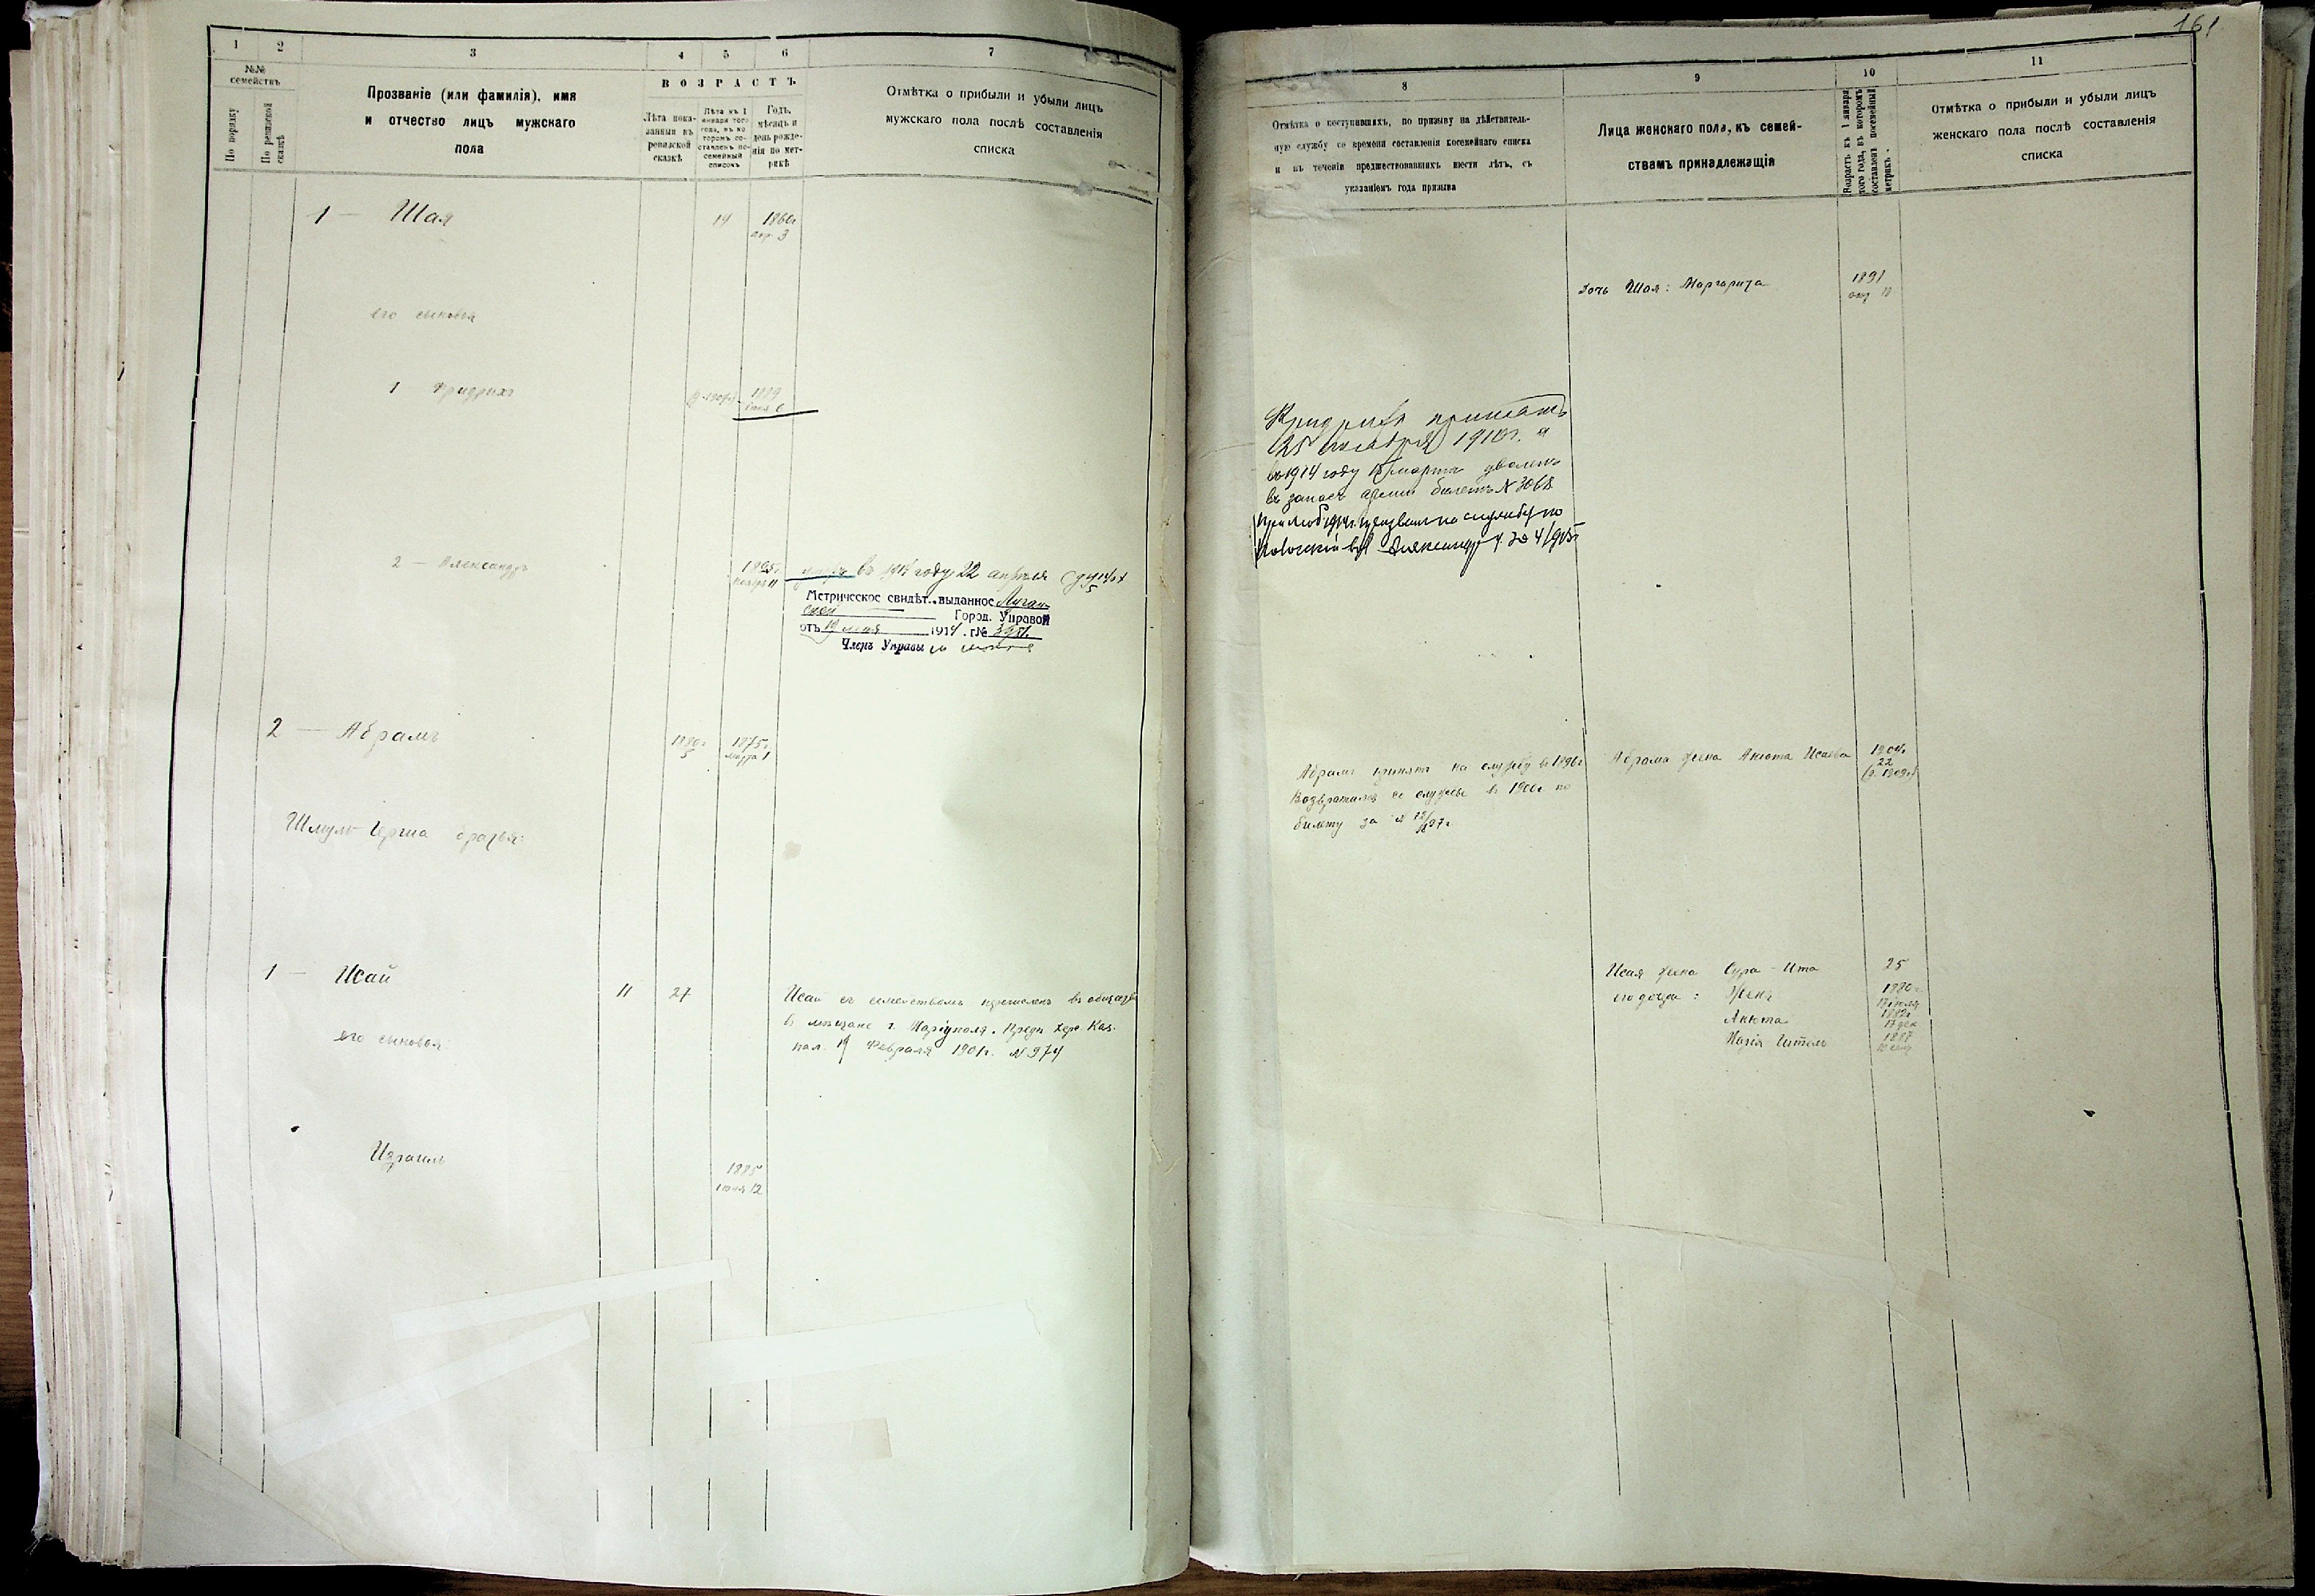 1
2
3
4
5
6
7
№№
семействъ
По порядку
По ревизской сказкѣ
Прозваніе (или фамилія), имя
и отчество лицъ мужскаго
пола
ВОЗРАСТЪ
Лѣта пока-
занныя въ
ревизской
сказкѣ
Лѣта къ 1
января того
года, въ ко
торомъ со-
ставленъ по-
семейный
списокъ
Годъ,
мѣсяцъ и
день рожде-
нія по мет-
рикѣ
Отмѣтка о прибыли и убыли лицъ
мужскаго пола послѣ составленія
списка
1 — Шая
19
1860г
апр 3
его сыновья
1 Фридрихъ
1889
2 — Александръ
1895г.
ноября 11
въ году 22 апрѣля
Метрическое свидѣт. выданное Луган-
ской Город. Управой
отъ 19 мая 1914 г. №
Членъ Управы
2 — Абрамъ
1880г
5
1875г
марта 1
Шмуль Герша братья:
1 — Исай
11
27
Исай съ семействомъ перечисленъ въ
въ мѣщане г. Маріуполя. Предп. Каз.
пал. 19 Февраля 1901г. № 974
его сыновья
Израиль
1885
іюня 12
161
8
9
10
11
Отмѣтка о поступившихъ, по призыву на дѣйствитель-
ную службу со времени составленія посемейнаго списка
и въ теченіи предшествовавшихъ шести лѣтъ, съ
указаніемъ года призыва
Лица женскаго пола, къ семей-
ствамъ принадлежащія
Возрастъ къ 1 января
того года, въ которомъ
составленъ посемейный
метрикъ.
Отмѣтка о прибыли и убыли лицъ
женскаго пола послѣ составленія
списка
дочь Шая: Маргарита
1891
окт
Фридрихъ принятъ
25 октября 1910г. и
въ 1914 году марта уволенъ
въ запасъ арміи билетъ № 3068
призванъ на службу по
Абрамъ принятъ на службу въ 1896г
Возвратился со службы въ 1900г по
билету за №
Абрама жена Анюта Исаева
1904г.
22
(р. 1909г)
Исая жена Сура-Ита
25
его дочери: Женя
1880г
17 іюля
Анюта
1882г
17 дек
Марія Гитель
1887